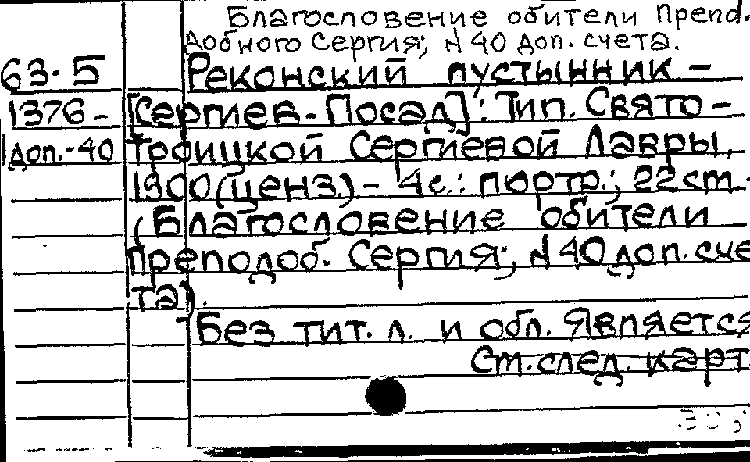 Благословение обители Препд.
добного Сергия; N 40 доп. счета.
63-5 Реконский пустынник –
1376- [Сергиев-Посад]: Тип. Свято-
доп.-40 Троицкой Сергиевой Лавры,
1900 (ценз). – 4 с.: портр.; 22 cm.
(Благословение обители
Преподоб. Сергия; N 40 доп. сче
та).
Без тит. л. и обл. Является
См. след. карт